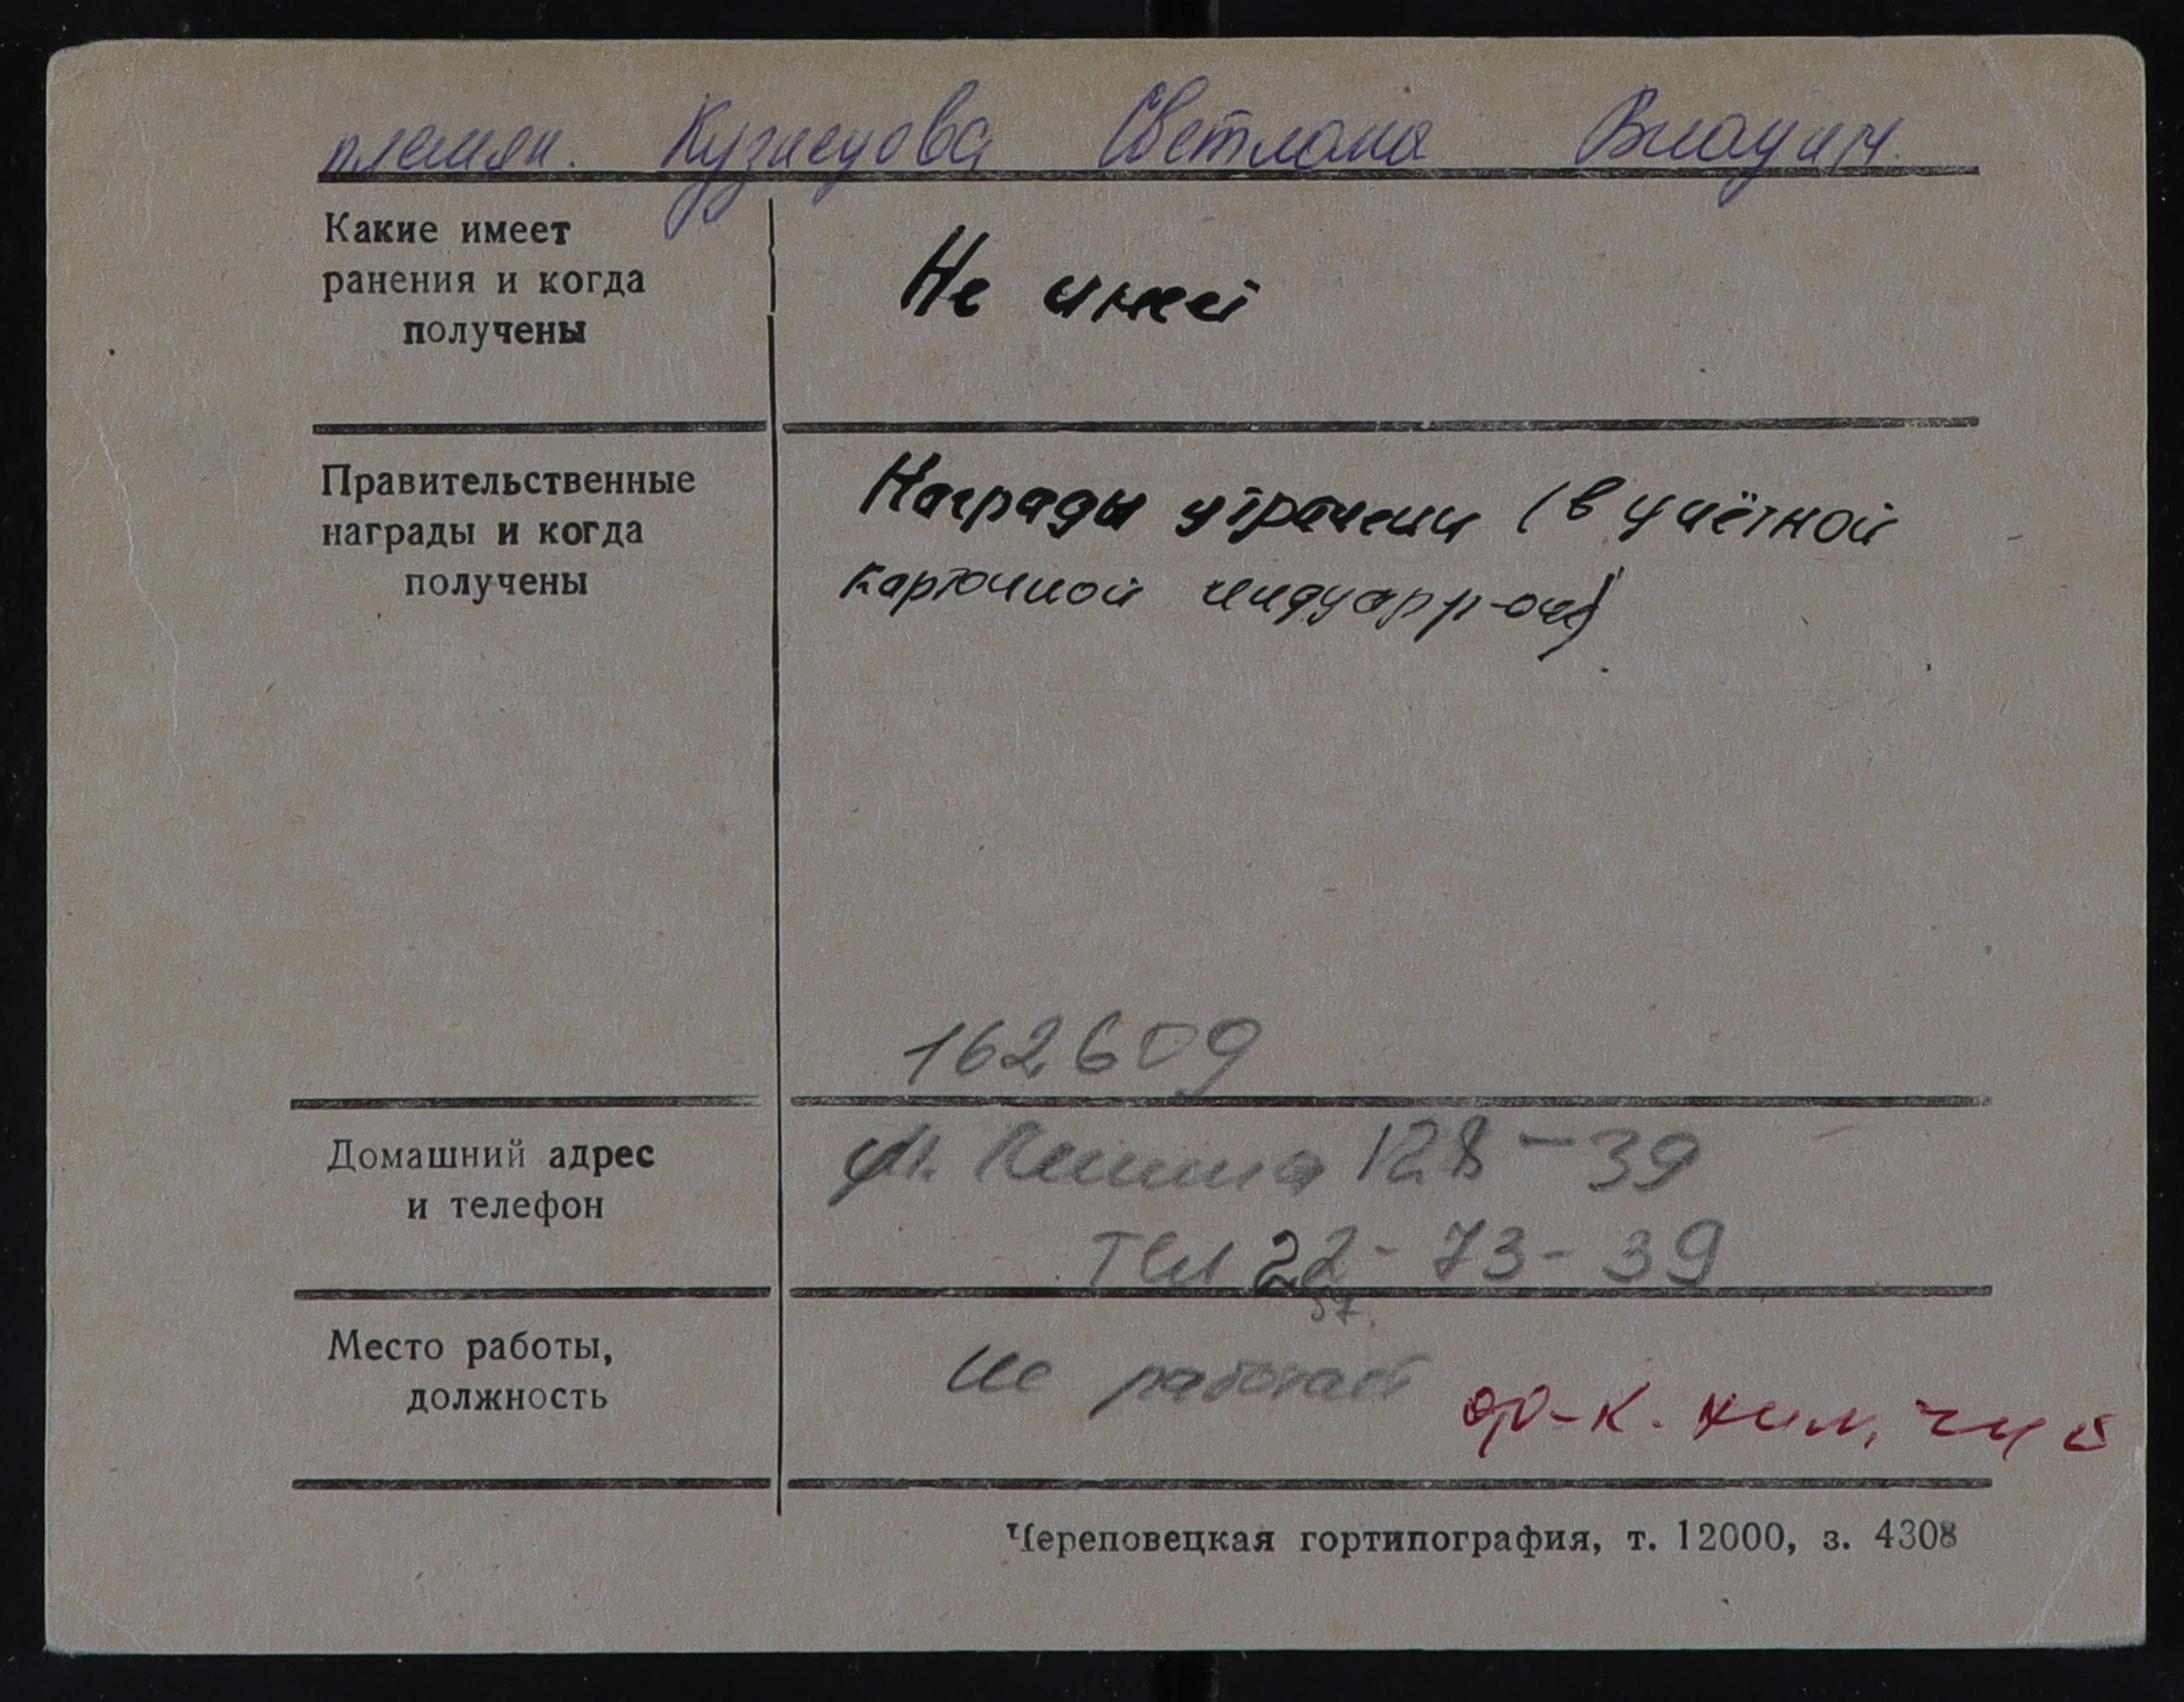 племян. Кузнецова Светлана Владим.
Какие имеет
ранения и когда
получены
Не имеет
Правительственные
награды и когда
получены
Награды утрачены (в учётной
карточкой
162609
Домашний адрес
и телефон
ул. Ленина 128-39
Тел 22-73-39
57.
Место работы,
должность
Не работает
Череповецкая гортипография, т. 12000, з. 4308